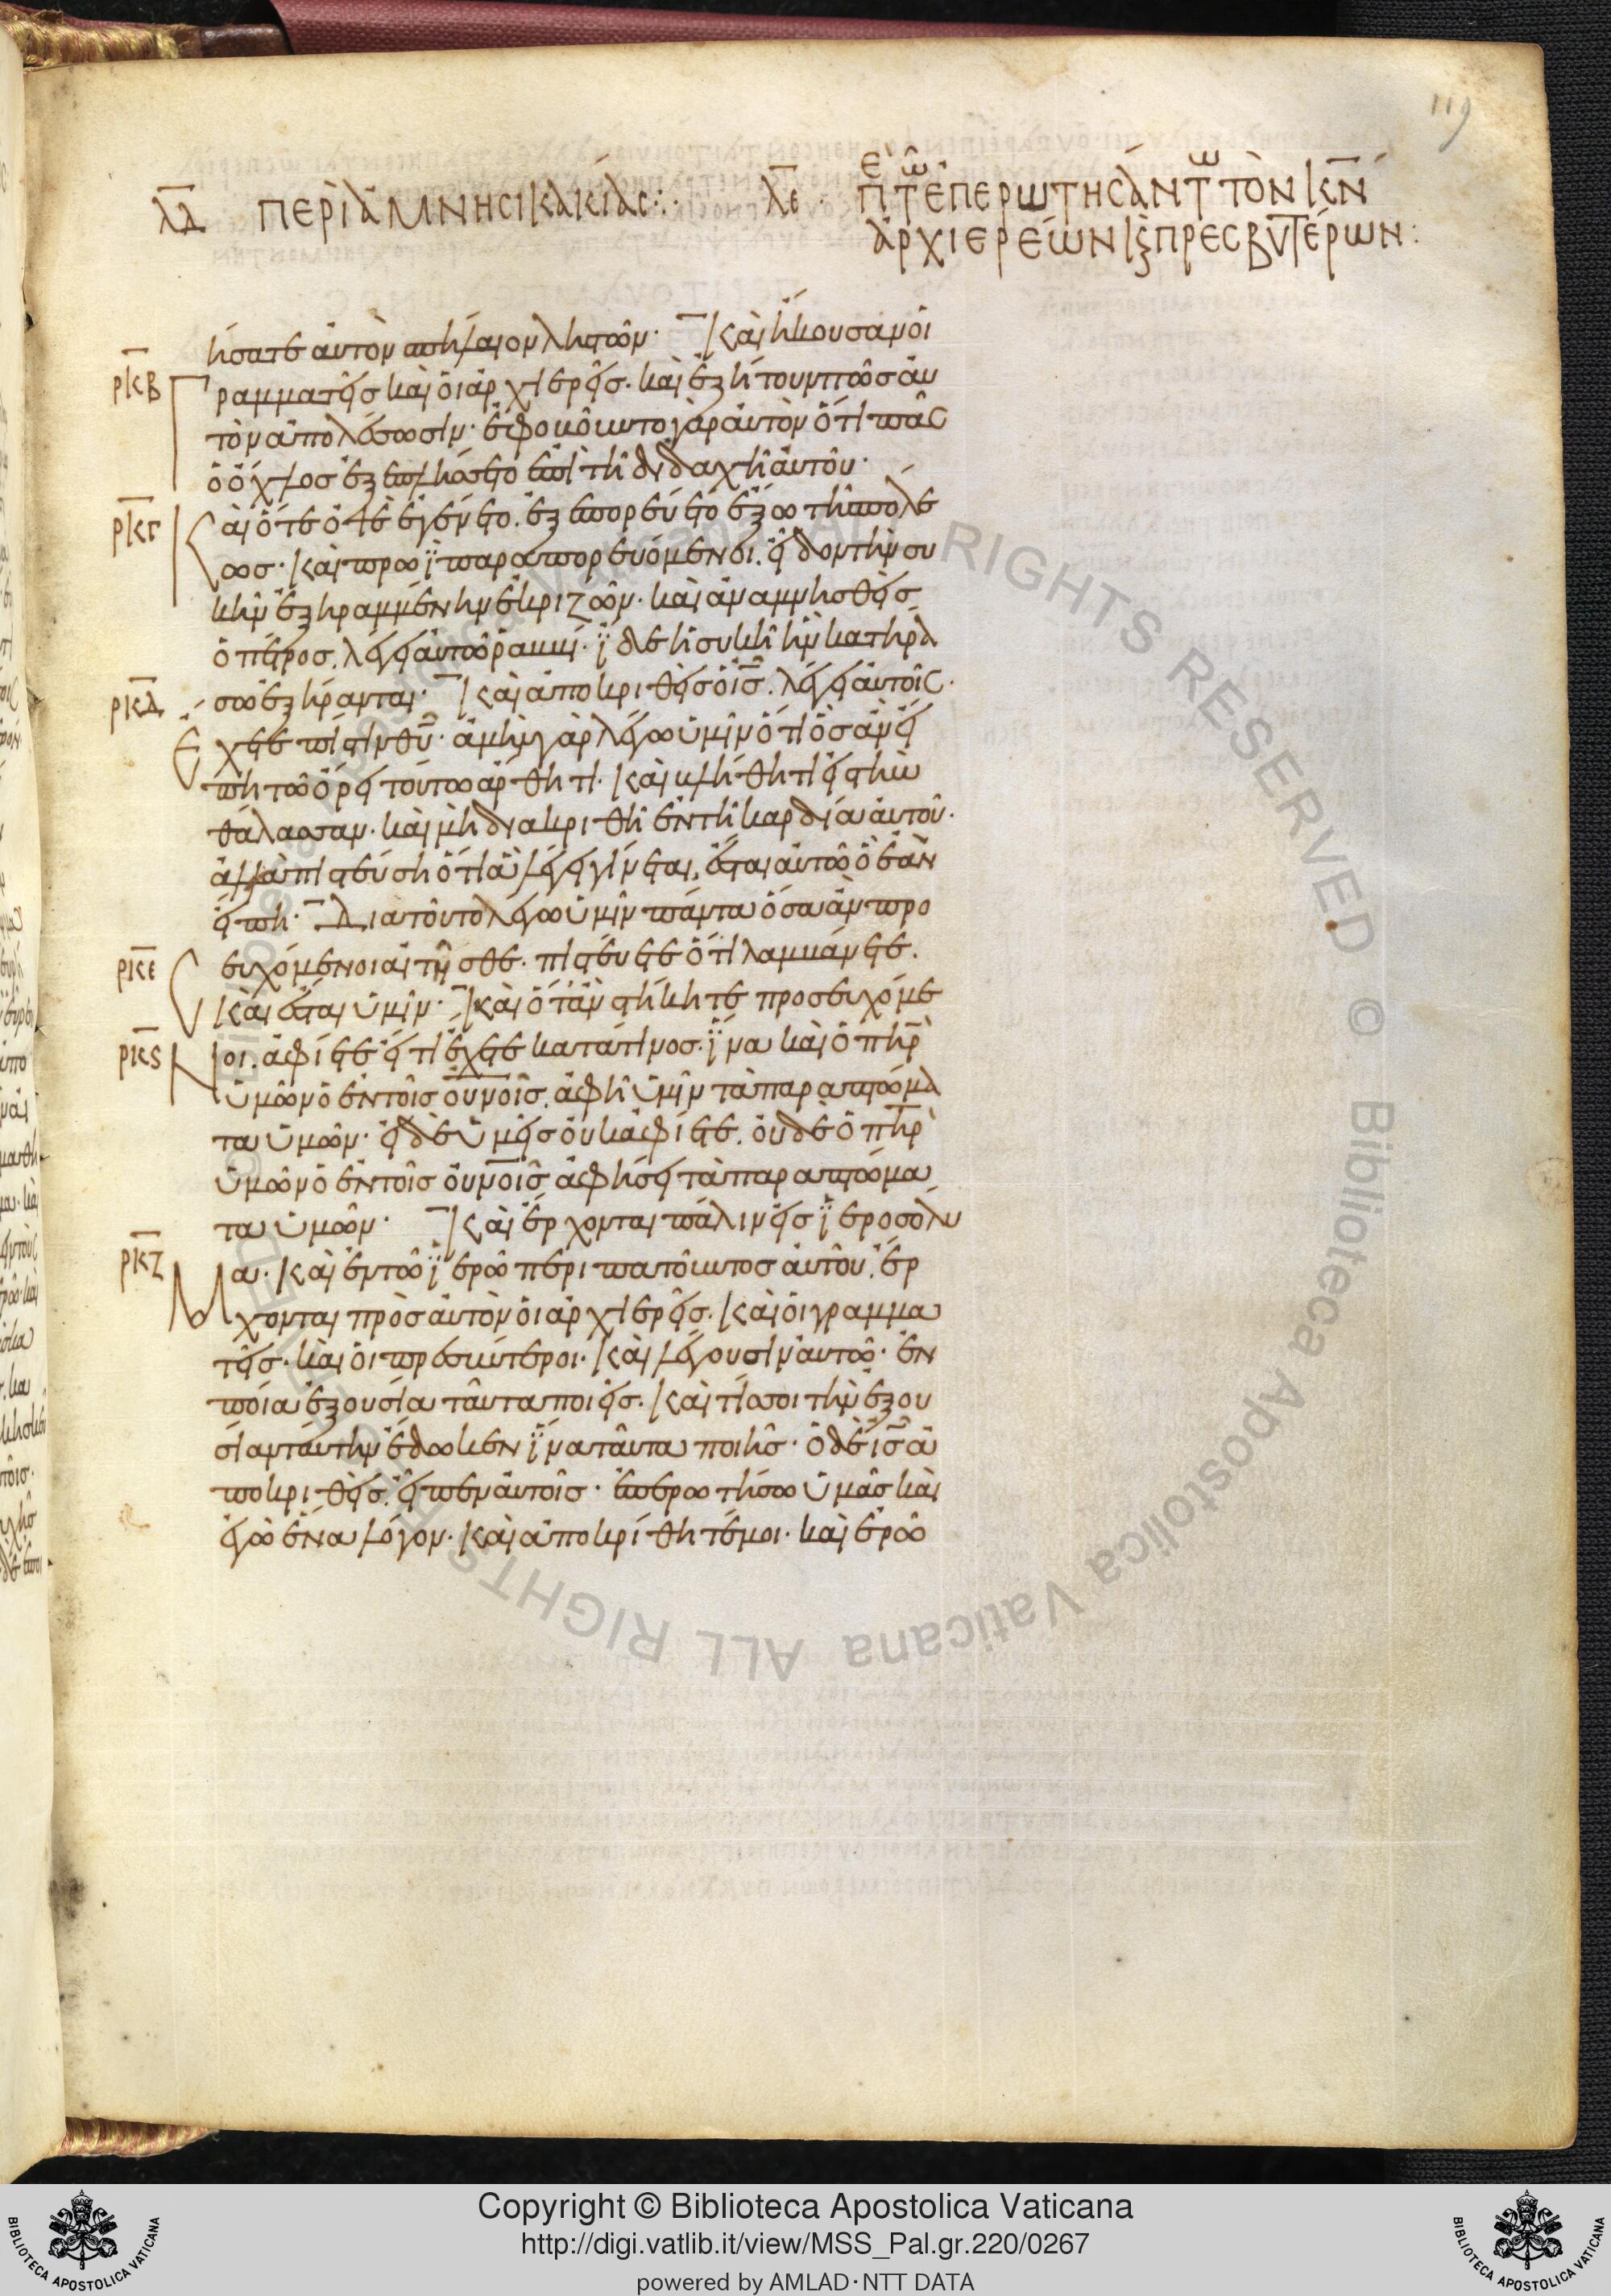 119
λδ περὶ ἀμνησικακίας:· λε · π τ ἐπερωτησάντ τὸν κν
ἀρχιερέων κ πρεσβυτέρων:
ήσατε αὐτὸν σπήλαιον λῃστῶν· Καὶ ἤκουσαν οἱ
ρκβ Γραμματεῖσ καὶ οἱ ἀρχιερεῖσ· καὶ ἐζήτουν πῶσ αὐ
τὸν ἀπολέσωσιν· ἐφοβοῦντο γὰρ αὐτὸν ὅτι πᾶσ
ὁ ὄχλοσ ἐξεπλήσσετο ἐπὶ τῆ διδαχῆ αὐτοῦ·
ρκγ Καὶ ὅτε ὀψὲ ἐγένετο. ἐξεπορεύετο ἔξω τῆσ πόλε
ωσ· Καὶ πρωῒ παραπορευόμενοι. εἶδον τὴν συ
κῆν ἐξηραμμένην ἐκ ριζῶν· καὶ ἀναμνησθεὶσ
ὁ πέτροσ. λέγει αὐτῶ ραββί· ἴδε ἡ συκῆ ἣν κατηρά
ρκδ σω ἐξήρανται· Καὶ ἀποκριθεὶσ ὁ ισ. λέγει αὐτοῖσ·
Ἔχετε πίστιν θυ· ἀμὴν γὰρ λέγω ὑμῖν ὅτι ὃσ ἂν εἴ
πη τῶ ὄρει τούτω ἄρθητι· Καὶ βλήθητι εἰσ τὴν
θάλασσαν· καὶ μὴ διακριθῆ ἐν τῆ καρδία αὐτοῦ·
ἀλλὰ πιστεύση ὅτι ἃ λέγει γίνεται. ἔσται αὐτῶ ὃ ἐὰν
εἴπη· Διατοῦτο λέγω ὑμῖν πάντα ὅσα ἂν προσ
ρκε ευχόμενοι αἰτῆσθε· πιστεύετε ὅτι λαμβάνετε.
Καὶ ἔσται ὑμῖν· Καὶ ὅταν στήκητε προσευχόμε
ρκς Νοι. ἀφίετε εἴ τι ἔχετε κατά τινοσ· ἵνα καὶ ὁ πηρ
ὑμῶν ὁ ἐν τοῖσ ουνοισ. ἀφῆ ὑμῖν τὰ παραπτώμα
τα ὑμῶν· εἰ δὲ ὑμεῖσ οὐκ ἀφίετε. οὐδὲ ὁ πηρ
ὑμῶν ὁ ἐν τοῖσ ουνοισ ἀφήσει τὰ παραπτώμα
τα ὑμῶν· Καὶ ἔρχονται πάλιν εἰσ ἱεροσόλυ
ρκζ Μα· Καὶ ἐν τῶ ἱερῶ περιπατοῦντοσ αὐτοῦ. ἔρ
χονται πρὸσ αὐτὸν οἱ ἀρχιερεῖσ. Καὶ οἱ γραμμα
τεῖσ· καὶ οἱ πρεσβύτεροι· Καὶ λέγουσιν αὐτῶ· ἐν
ποία ἐξουσία ταῦτα ποιεῖσ· Καὶ τίσ σοι τὴν ἐξου
σίαν ταύτην ἔδωκεν ἵνα ταῦτα ποιῆσ· ὁ δὲ ισ ἀ
ποκριθεὶσ. εἶπεν αὐτοῖσ· ἐπερωτήσω ὑμᾶσ καὶ
ἐγὼ ἕνα λόγον· Καὶ ἀποκρίθητέ μοι· καὶ ἐρῶ
Copyright © Biblioteca Apostolica Vaticana
http://digi.vatlib.it/view/MSS_Pal.gr.220/0267
powered by AMLAD·NTT DATA
BIBLIOTECA APOSTOLICA VATICANA
BIBLIOTECA APOSTOLICA VATICANA
Biblioteca Apostolica Vaticana ALL RIGHTS RESERVED © Biblioteca Apostolica Vaticana ALL RIGHTS RESERVED ©